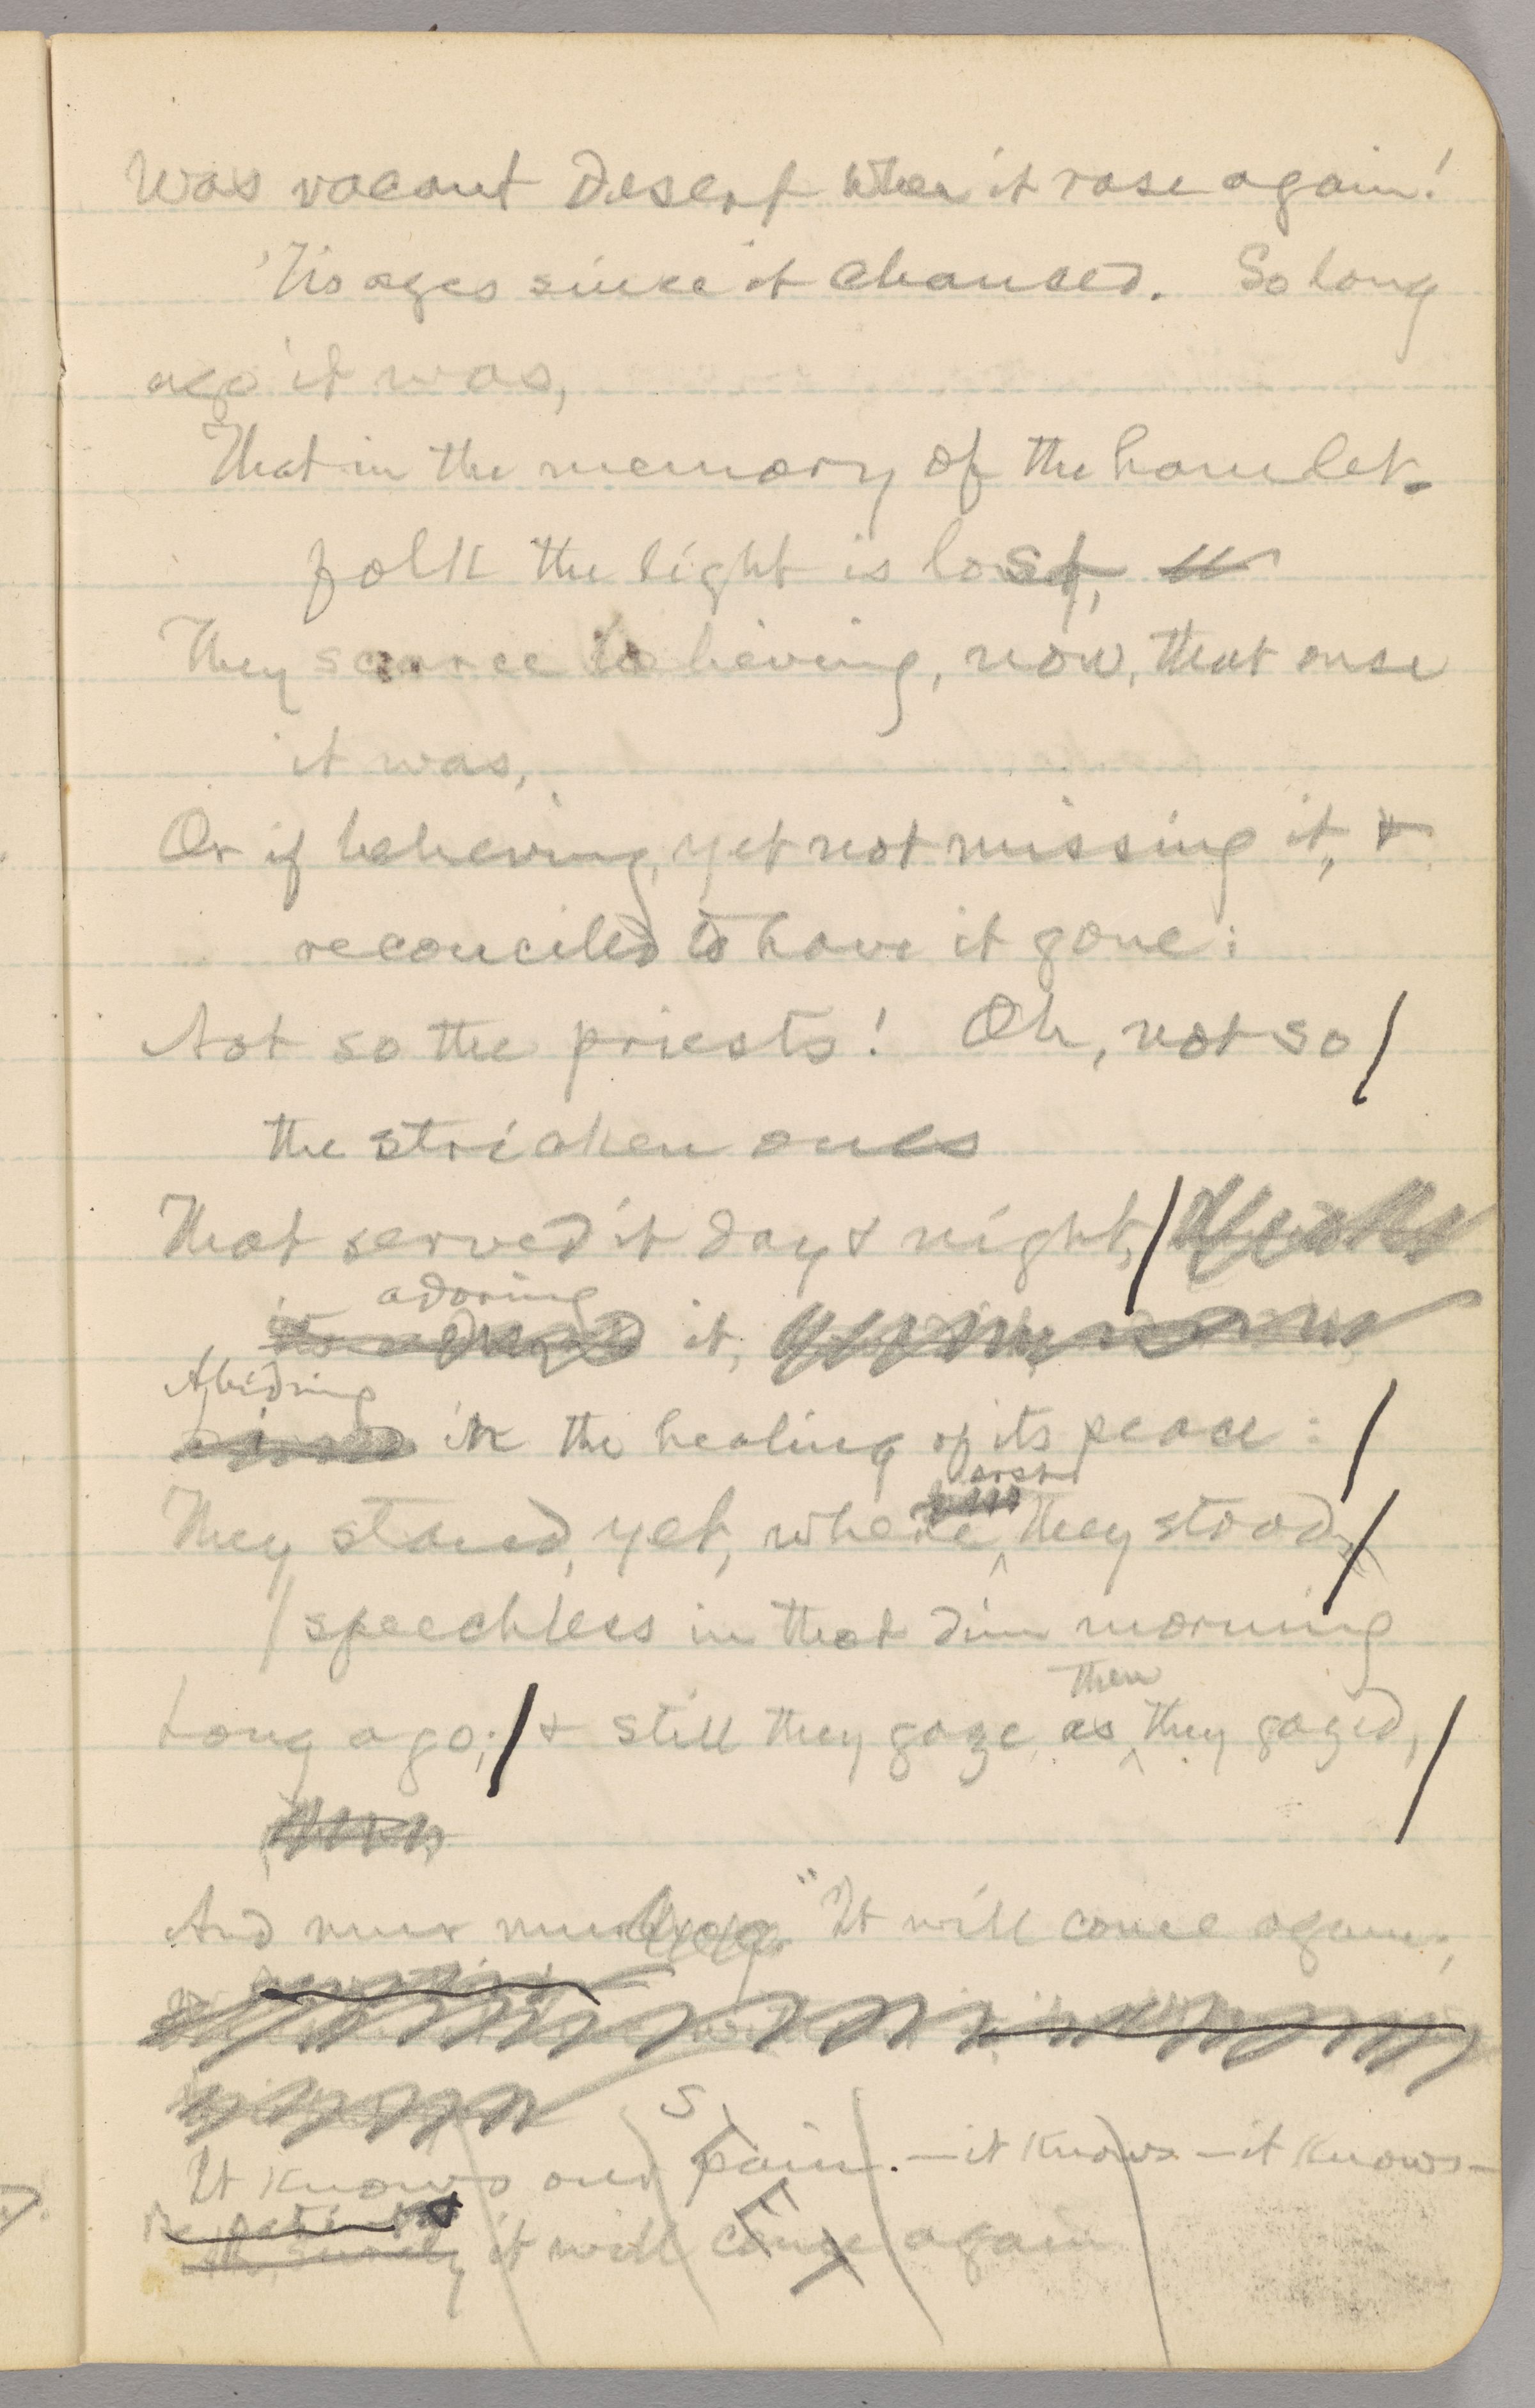 Was vacant Desert when it rose again!
'Tis ages since it chanced. So long
ago it was,
That in the memory of the hamlet-
folk the light is lost,
They scarce believing, now, that once
it was,
Or if believing, yet not missing it, &
reconciled to have it gone:
Not so the priests! Oh, not so
the stricken ones
That served it day & night,
adoring
it,
Abiding
in the healing of its peace:
erst
They stand, yet, where they stood
speechless in that dim morning
then
Long ago; & still they gaze, as they gazed,
And murmur "It will come again;
It knows our pain. —it knows —it knows—
it will come again
STET